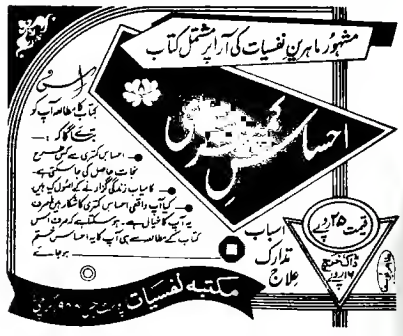 مشہور ماہرینِ نفسیات کی آرا پر مشتمل کتاب
احساسِ کمتری
اس
کتاب کا مطالعہ آپ کو
بتائے گا کہ :—
احساس کمتری سے کس طرح
نجات حاصل کی جا سکتی ہے۔
کامیاب زندگی گزارنے کے اصول کیا ہیں
کیا آپ واقعی احساس کمتری کا شکار ہیں یا صرف
یہ آپ کا خیال ہے۔ ہو سکتا ہے کہ صرف اس
کتاب کے مطالعہ سے ہی آپ کا یہ احساس ختم
ہو جائے
اسباب
تدارک
علاج
قیمت ۲۵ روپے
ڈاک خرچ
روپے
مکتبہ نفسیات پوسٹ بکس کراچی